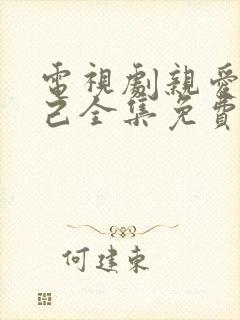 電視劇親愛
己全集免費
何建東